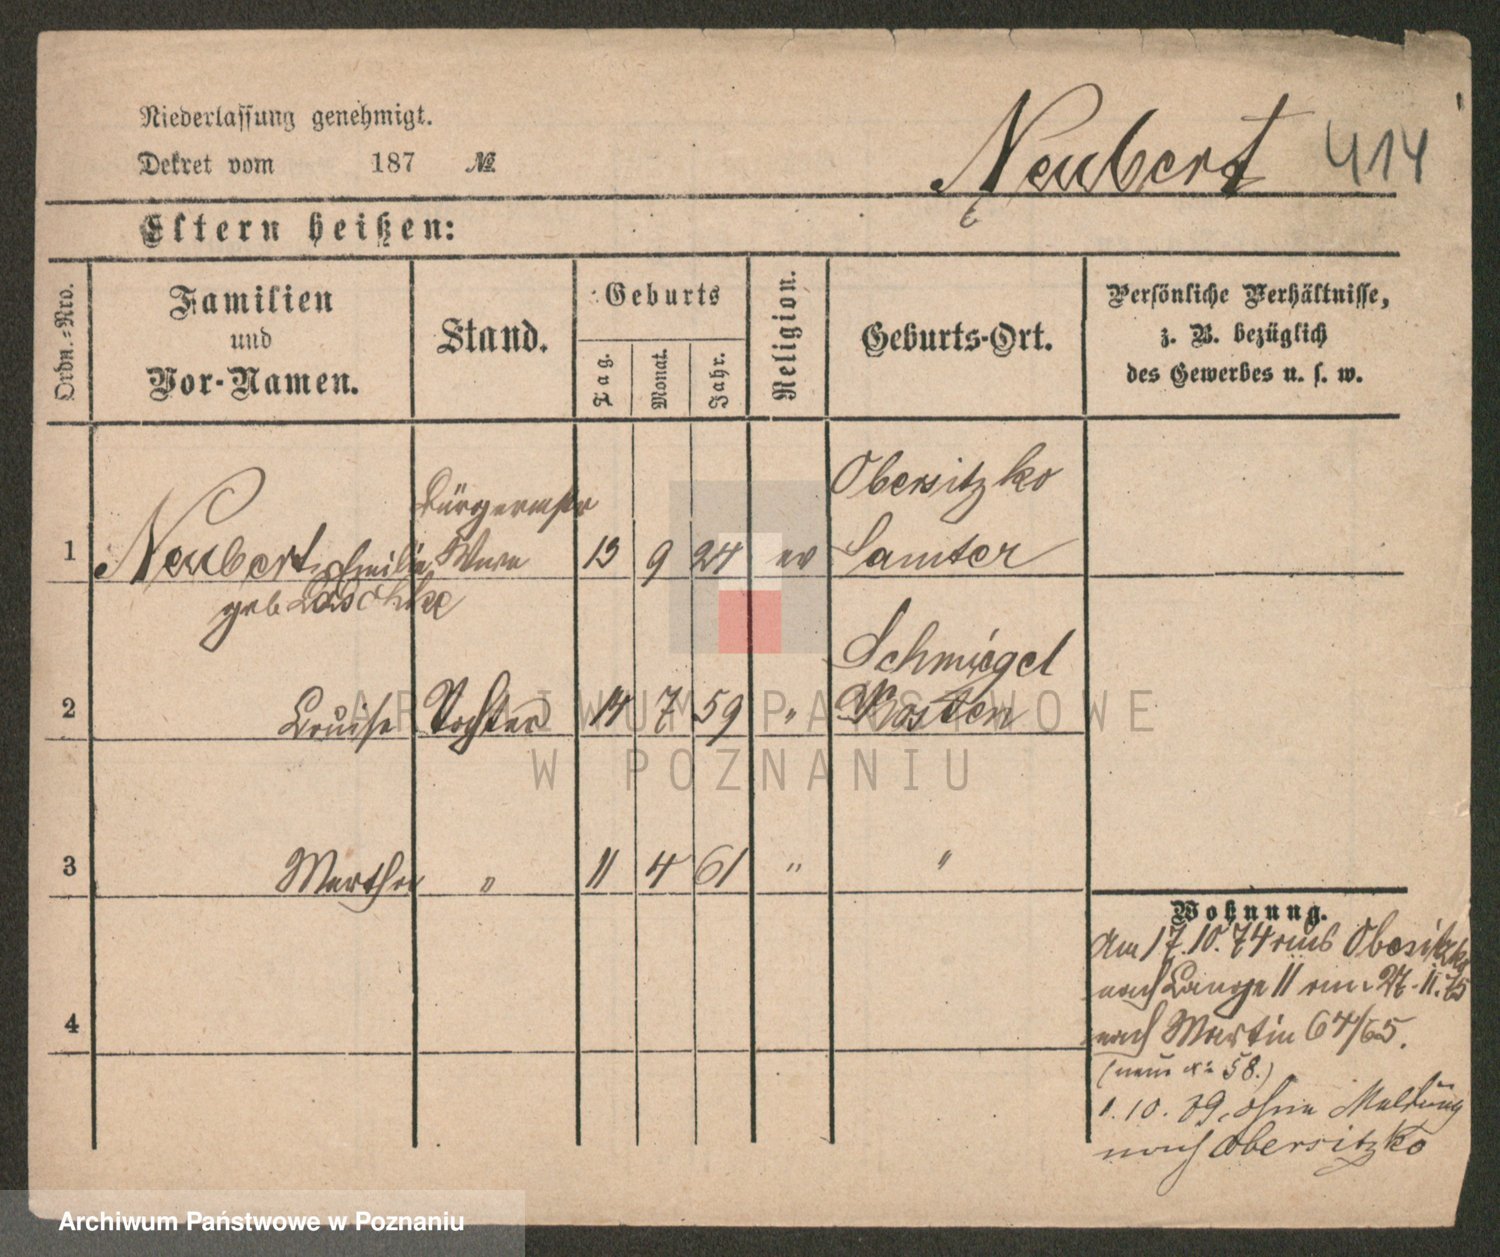 Niederlassung genehmigt.
Dekret vom 187 №
Neubert 414
Eltern heißen:
Ordn.-Nro.
Familien
und
Vor-Namen.
Stand.
Geburts
Tag.
Monat.
Jahr.
Religion.
Geburts-Ort.
Persönliche Verhältnisse,
z. B. bezüglich
des Gewerbes u. s. w.
Obersitzko
Bürgermstr
1 Neubert, Emilie Wwe 13 9 24 ev Samter
geb Laschke
Schmiegel
2 Louise Tochter 14 7 59 " Kosten
3 Martha " 11 4 61 " "
4
Wohnung.
Am 17.10.74 aus Obersitzko
nach Lange 11 am 27.11.75
nach Martin 64/65.
(neue № 58.)
1.10.89. ohne Meldung
nach Obersitzko
ARCHIWUM PAŃSTWOWE
W POZNANIU
Archiwum Państwowe w Poznaniu